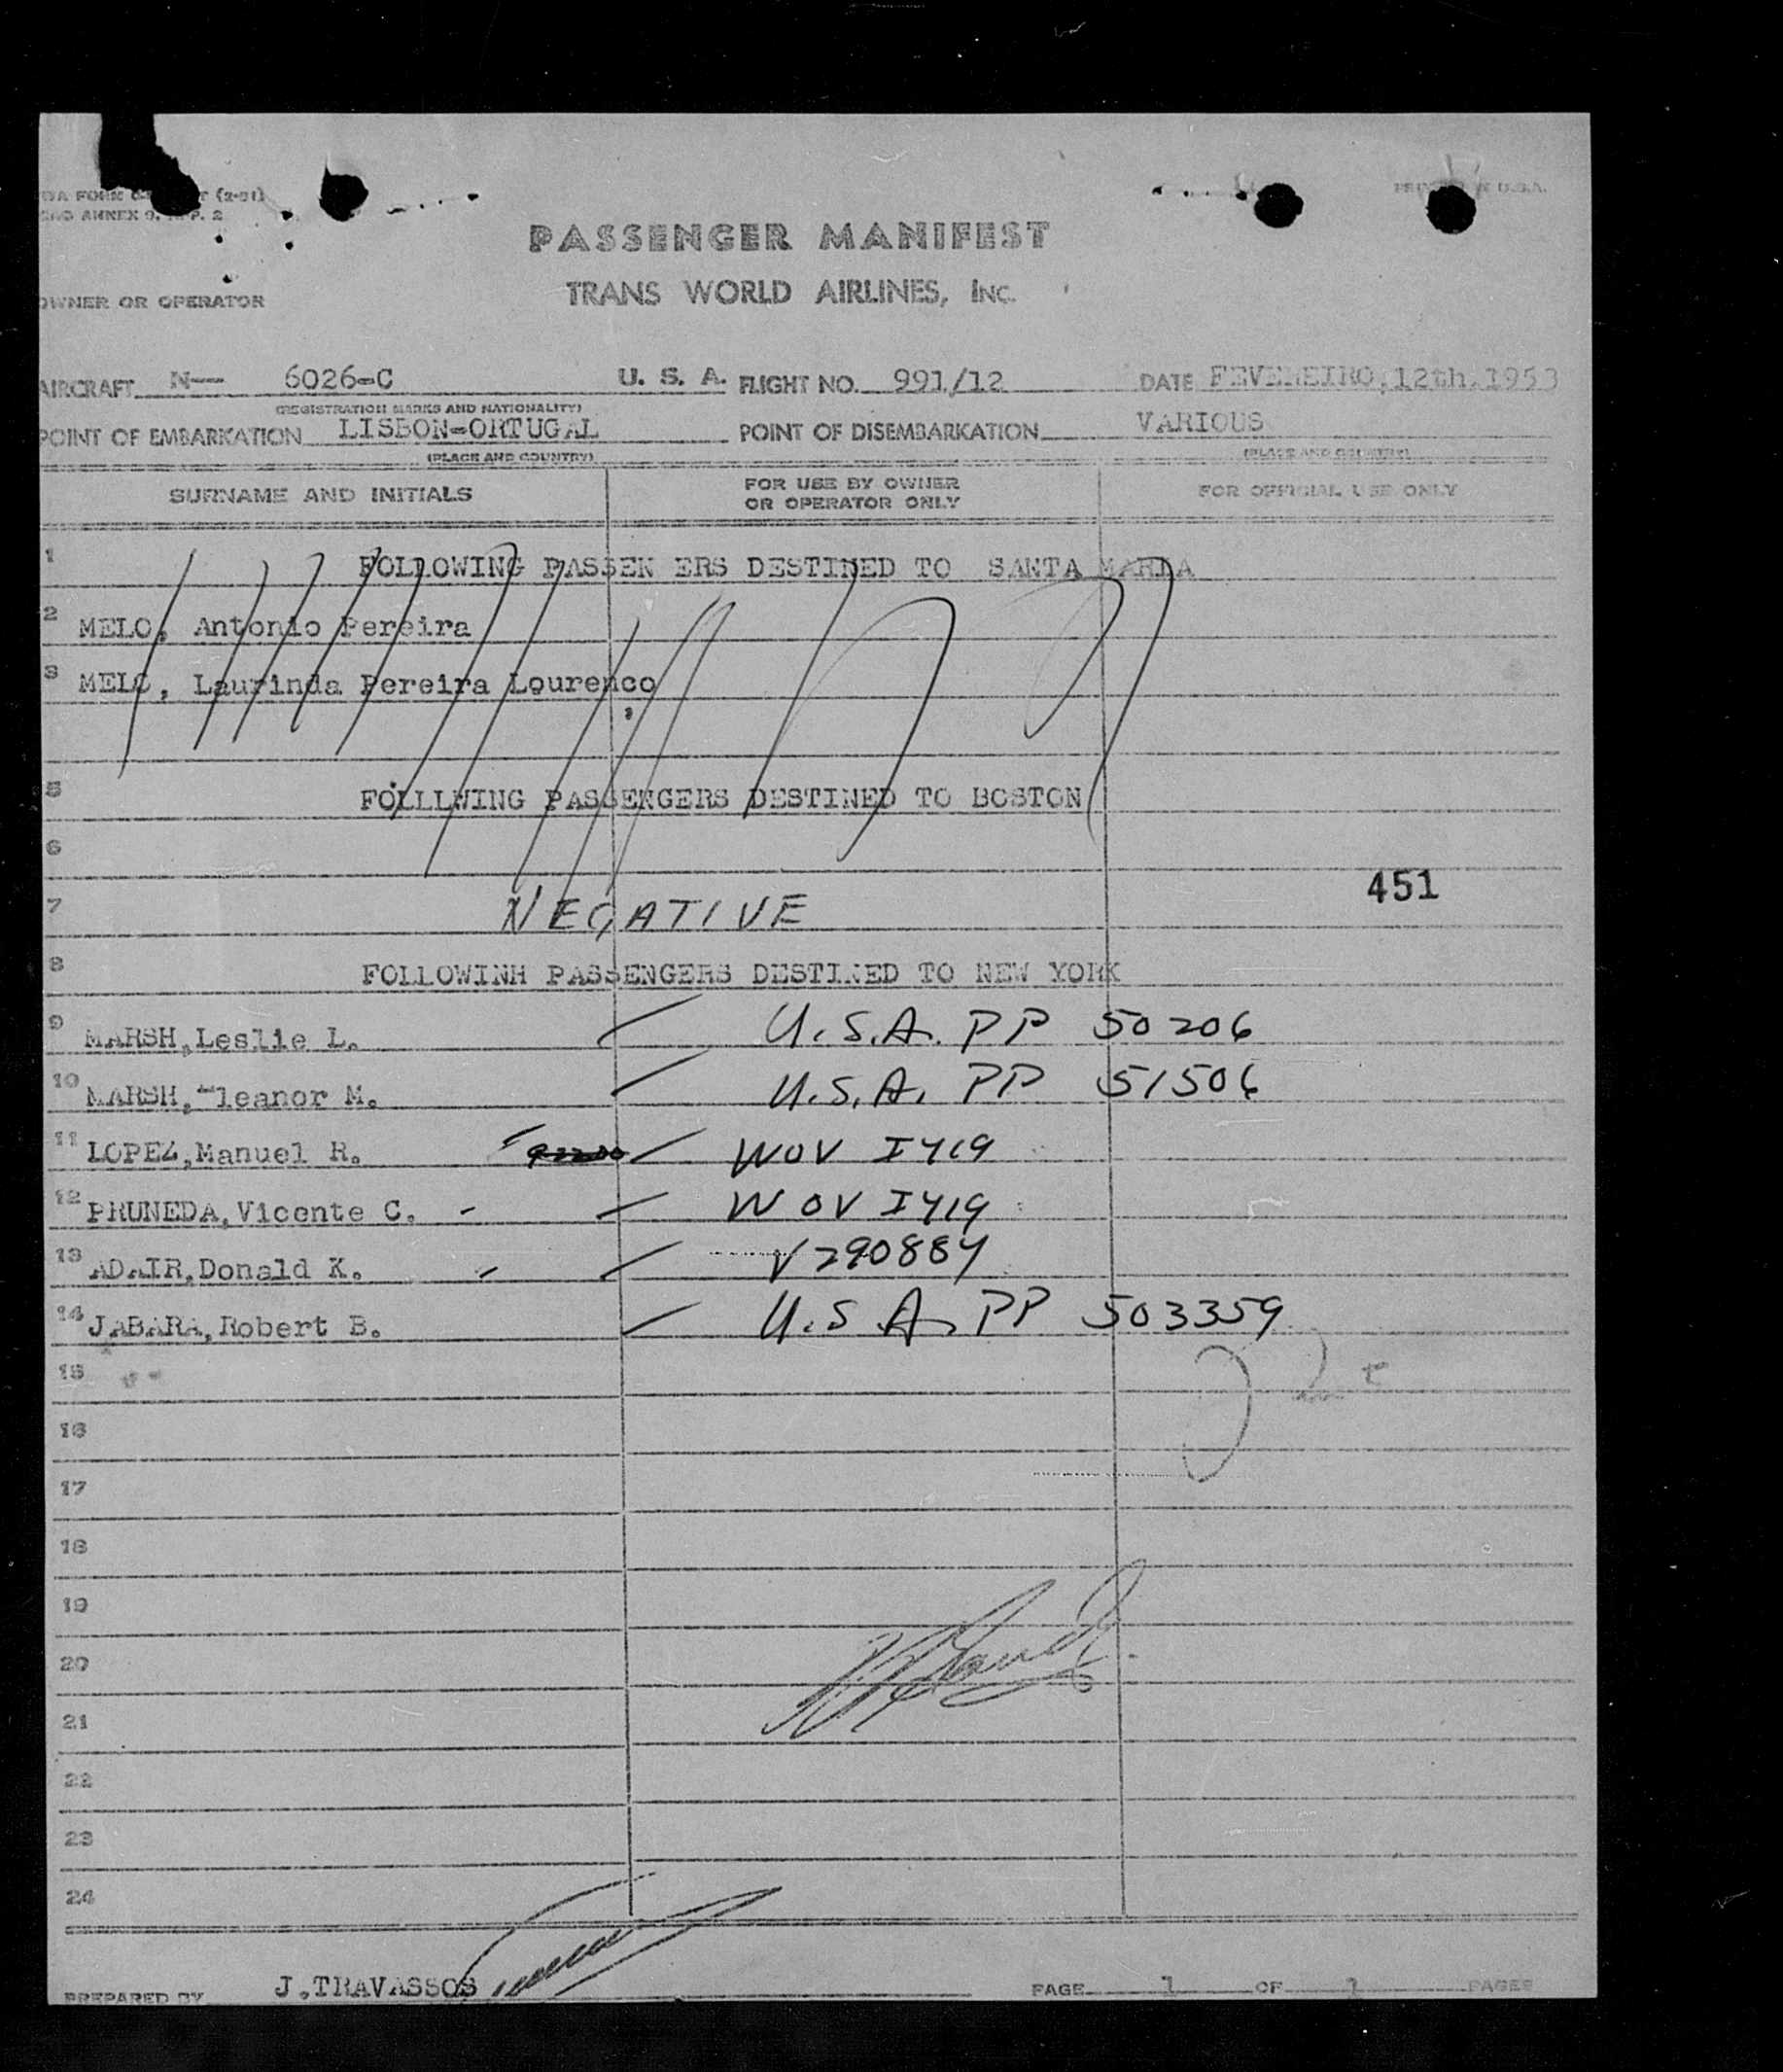 (2-51)
ANNEX 9, P. 2
U.S.A.
PASSENGER MANIFEST
TRANS WORLD AIRLINES, INC.
OWNER OR OPERATOR
AIRCRAFT N— 6026-C U. S. A. FLIGHT NO. 991/12 DATE FEVEREIRO,12th,1953
(REGISTRATION MARKS AND NATIONALITY)
POINT OF EMBARKATION LISBON-ORTUGAL POINT OF DISEMBARKATION VARIOUS
(PLACE AND COUNTRY) (PLACE AND COUNTRY)
SURNAME AND INITIALS FOR USE BY OWNER OR OPERATOR ONLY FOR OFFICIAL USE ONLY
1 FOLLOWING PASSEN ERS DESTINED TO SANTA MARIA
2 MELO, Antonio Pereira
3 MELO, Laurinda Pereira Lourenco
5 FOLLLWING PASSENGERS DESTINED TO BOSTON
6
451
7 NEGATIVE
8 FOLLOWINH PASSENGERS DESTINED TO NEW YORK
9 MARSH,Leslie L. U.S.A. PP 50206
10 MARSH, leanor M. U.S.A. PP 51506
11 LOPEZ,Manuel R. WOV I419
12 PRUNEDA,Vicente C. - WOV I419
13 ADAIR,Donald K. - V290884
14 JABARA,Robert B. U.S.A. PP 503359
15
16
17
18
19
20
21
22
23
24
PREPARED BY J.TRAVASSOS PAGE 1 OF 1 PAGES